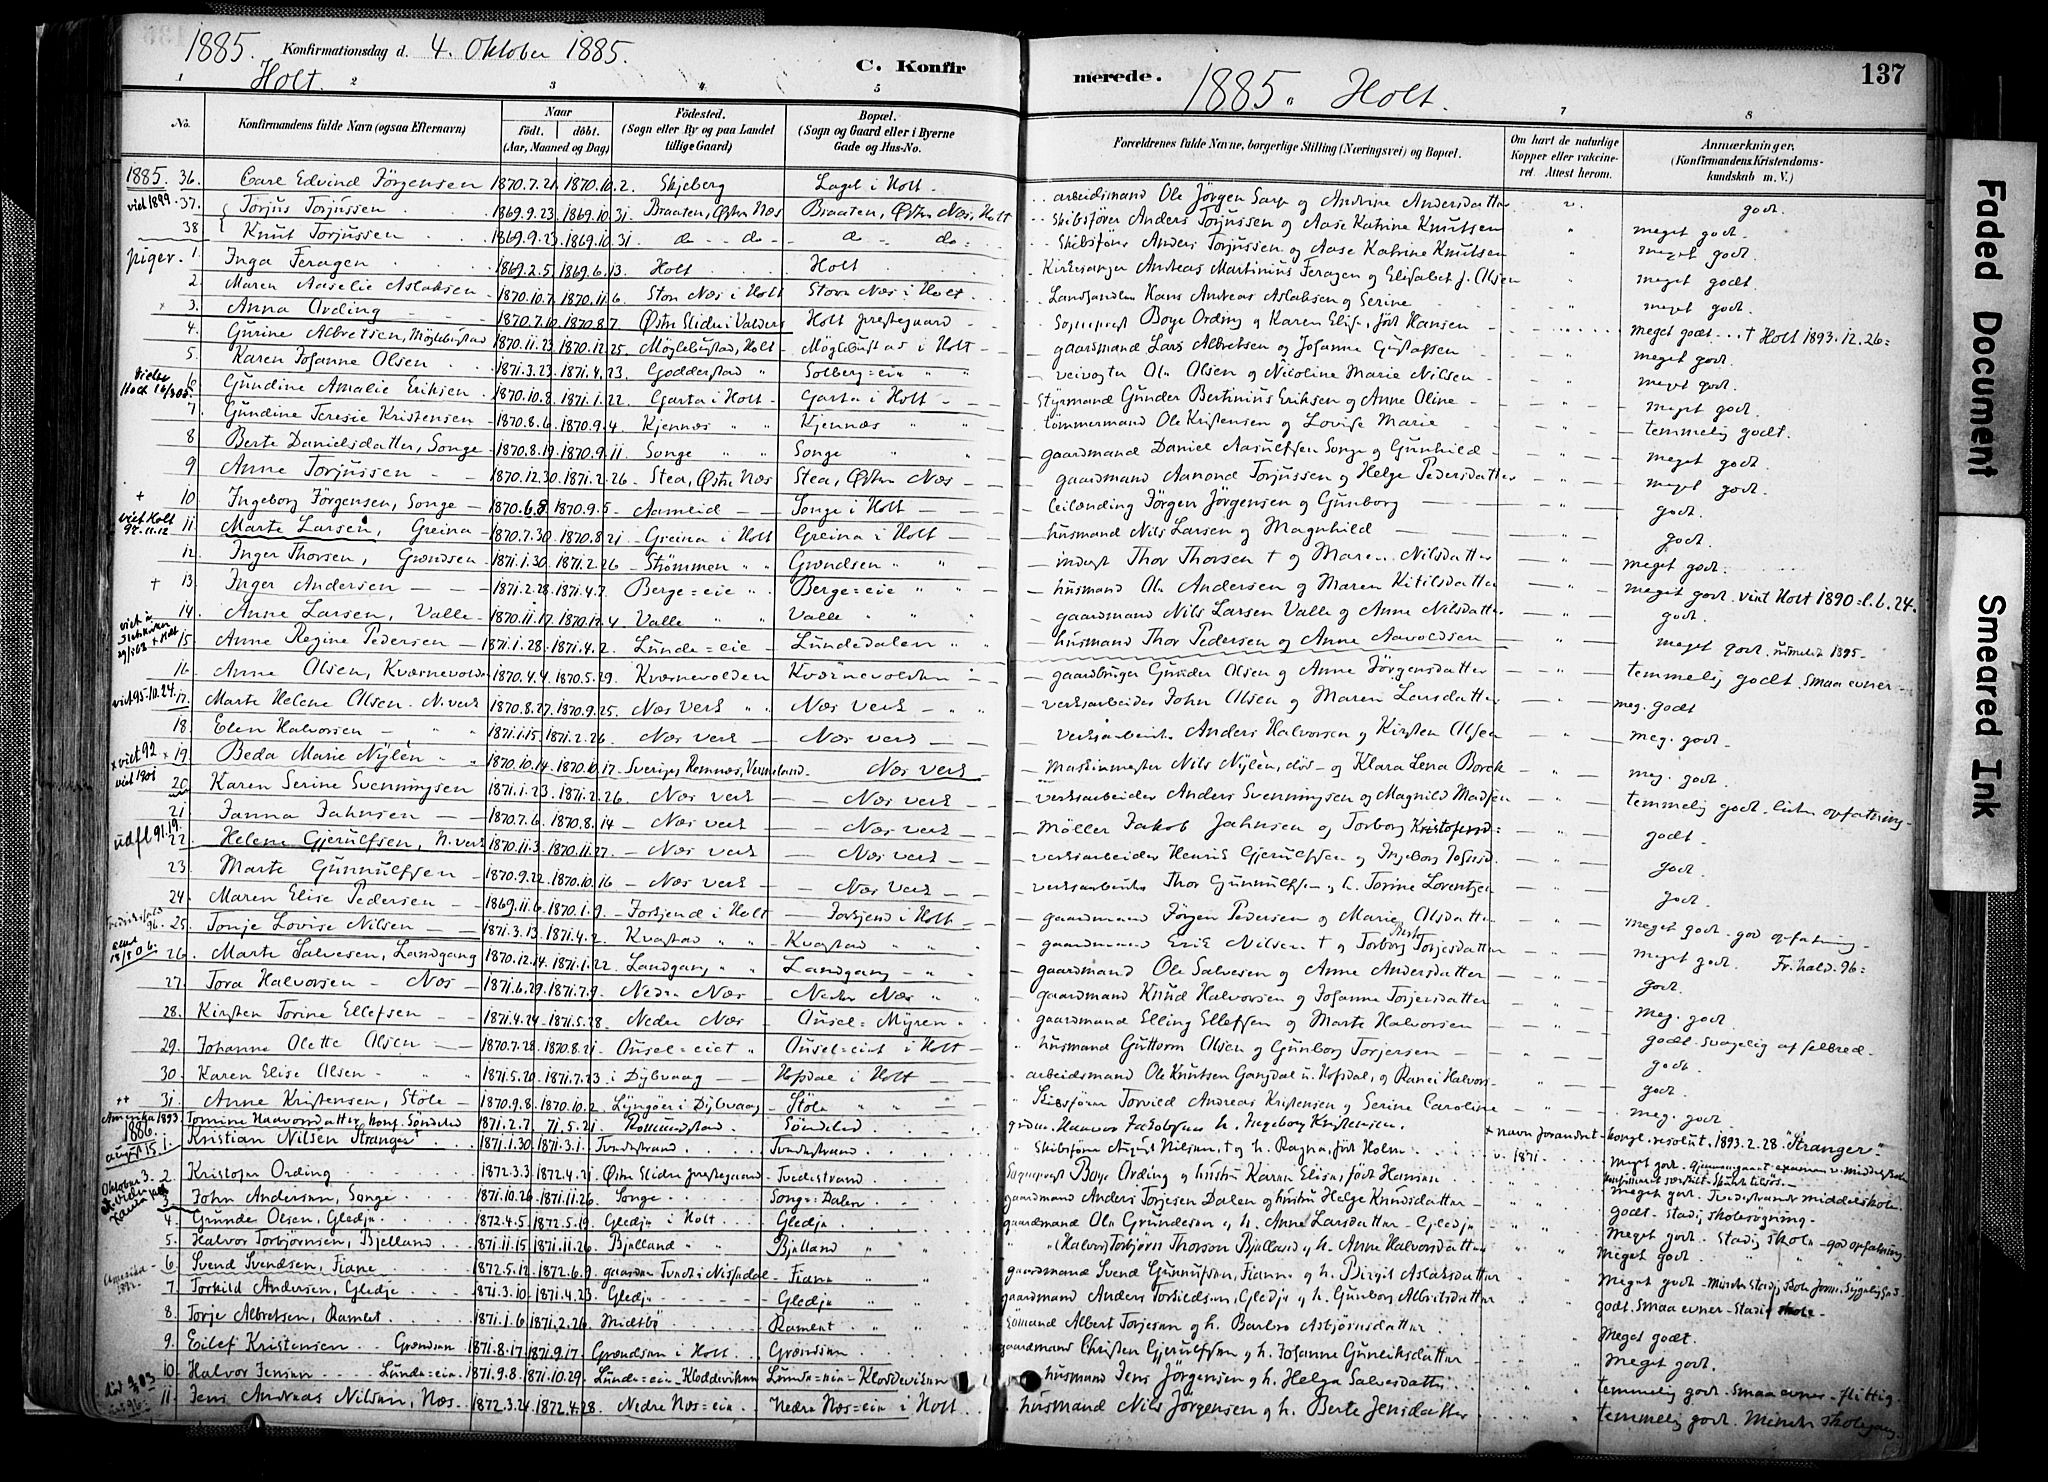 1885. Konfirmationsdag d. 4. Oktober 1885. C. Konfirmerede. 1885. Holt. 137
Holt.
1 2 3 4 5 7 8
No. Konfirmandens fulde Navn (ogsaa Efternavn) Naar født. døbt. (Aar, Maaned og Dag) Fødested. (Sogn eller By og paa Landet tillige Gaard) Bopæl. (Sogn og Gaard eller i Byerne Gade og Hus-No.) Forældrenes fulde Navne, borgerlige Stilling (Næringsvei) og Bopæl. Om havt de naturlige Kopper eller vaccineret. Attest herom. Anmærkninger. (Konfirmandens Kristendomskundskab m. V.)
1885. 36. Carl Edvind Jörgensen 1870.7.21. 1870.10.2. Skjeberg Laget i Holt arbeidsmand Ole Jörgen Sarp og Andrine Andersdatter godt.
viet 1899 37. Torjus Torjussen 1869.9.23 1869.10.31 Braaten, Østre Næs Braaten, Østre Næs, Holt Skibsförer Anders Torjussen og Aase Katrine Knutsen meget godt.
38 Knut Torjussen 1869.9.23. 1869.10.31 do do do do Skibsförer Anders Torjussen og Aase Katrine Knutsen meget godt.
piger. 1. Inga Feragen 1869.2.5 1869.6.13. Holt Holt Kirkesanger Andreas Martinius Feragen og Elisabet J. Olsen meget godt.
2. Maren Aaselie Aslaksen 1870.10.7 1870.11.6. Store Næs i Holt Store Næs i Holt Landhandler Hans Andreas Aslaksen og Serine meget godt.
3. Anna Ording 1870.7.10 1870.8.7 Østre Slidre i Valders Holt prestegaard Sogneprest Boye Ording og Karen Elise, født Hansen meget godt + Holt 1893.12.26
4. Gurine Albretsen, Möglebustad 1870.11.23 1870.12.25. Möglebustad, Holt Möglebustad i Holt gaardmand Lars Albretsen og Johanne Gustafsen meget godt.
5. Karen Johanne Olsen 1871.3.23 1871.4.23. Godderstad Solberg=eie veivogter Ole Olsen og Nicoline Marie Nilsen meget godt.
6 Gundine Amalie Eriksen 1870.10.8. 1871.1.22. Garta i Holt Garta i Holt Styrmand Gunder Bertinius Eriksen og Anne Oline meget godt.
7. Gundine Teresie Kristensen 1870.8.6. 1870.9.4 Kjennæs Kjennæs tömmermand Ole Kristensen og Lovise Marie temmelig godt.
8 Berte Danielsdatter, Songe 1870.8.19. 1870.9.11 Songe Songe gaardmand Daniel Aasulfsen Songe og Gunhild meget godt.
9. Anne Torjussen 1870.12.30. 1871.2.26 Stea, Østre Næs Stea, Østre Næs gaardmand Aanond Torjussen og Helge Pedersdatter meget godt.
+ 10. Ingeborg Jörgensen, Songe 1870.6.8 1870.9.5 Aamlid Songe i Holt leilænding Jörgen Jörgensen og Gunborg godt.
viet Holt 97.11.12 11. Marte Larsen, Greina 1870.7.30 1870.8.21 Greina i Holt Greina i Holt husmand Nils Larsen og Magnhild godt.
12. Inger Thorsen, Grændsen 1871.1.30. 1871.2.26 Strömmen Grændsen inderst Thor Thorsen + og Maren Nilsdatter meget godt.
+ 13. Inger Andersen 1871.2.28. 1871.4.7. Berge=eie Berge=eie husmand Ole Andersen og Maren Kitilsdatter meget godt. viet Holt 1890
14. Anne Larsen, Valle 1870.11.17. 1870.12.4 Valle Valle gaardmand Nils Larsen Valle og Anne Nilsdatter godt.
15 Anne Regine Pedersen 1871.1.28. 1871.4.2. Lunde=eie Lundedalen husmand Thor Pedersen og Anne Aavoldsen meget godt.
16. Anne Olsen, Kværnevolden 1870.4.4 1870.5.29. Kværnevolden Kværnevolden gaardbruger Gunder Olsen og Anne Jörgensdatter temmelig godt. Smaa evner
viet 95.10.24. 17. Marte Helene Olsen N. verk 1870.8.27. 1870.9.25. Næs verk Næs verk verksarbeider John Olsen og Maren Larsdatter meg. godt
18. Elen Halvorsen 1871.1.15. 1871.2.26. Næs verk Næs verk verksarbeider Anders Halvorsen og Kirsten Olsen meg. godt.
x viet 92 x 19. Beda Marie Nylén 1870.10.14. 1870.10.17. Sverige, Remnæs, Vermeland Næs verk Maskinmester Nils Nylén, död og Klara Lena Borek meg. godt
viet 1901 20 Karen Serine Svenningsen 1871.1.23. 1871.2.26. Næs verk Næs verk verksarbeider Anders Svenningsen og Magnild Madsen temmelig godt. liten opfatning.
21 Janna Jahnsen 1870.7.6. 1870.8.14 Næs verk Næs verk Möller Jakob Jahnsen og Torborg Kristofersd= godt
udfl 91.19. 22. Helene Gjerulfsen, N. verk 1870.11.3. 1870.11.27. Næs verk Næs verk verksarbeider Henrik Gjerulfsen og Ingeborg Johnsd. godt.
23 Marte Gunnulfsen 1870.9.22. 1870.10.16 Næs verk Næs verk verksarbeider Thor Gunnulfsen og h. Torine Lorentzen godt.
24. Maren Elise Pedersen 1869.11.6. 1870.1.9. Torskjend i Holt Torskjend i Holt gaardmand Jörgen Pedersen og Marie Olsdatter meget godt. god opfatning
96. 25. Tonje Lovise Nilsen 1871.3.13. 1871.4.2. Kvastad Kvastad gaardmand Erik Nilsen + og Torborg Torjesdatter meget godt. Fr.hald. 96=
26. Marte Salvesen, Landgang 1870.12.14. 1871.1.22. Landgang Landgang gaardmand Ole Salvesen og Anne Andersdatter godt.
27. Tora Halvorsen Næs 1871.6.29. 1871.7.9. Nedre Næs Nedre Næs gaardmand Knud Halvorsen og Johanne Torjersdatter meg. godt
28. Kirsten Torine Ellefsen 1871.4.24. 1871.5.28 Nedre Næs Ausel=Myren gaardmand Elling Ellefsen og Marte Halvorsen godt. Svagelig af helbred
29. Johanne Olette Olsen 1870.7.28. 1870.8.21 Ausel=eiet Ausel=eiet i Holt husmand Guttorm Olsen og Gunborg Torjersen godt.
30. Karen Elise Olsen 1871.5.20. 1871.7.23 i Dybvaag Hofsdal i Holt arbeidsmand Ole Knutsen Gangdal u. Hofsdal, og Ranei Halvors- godt
++ 31. Anne Kristensen, Støle 1870.9.8. 1870.10.2 Lyngøer i Dybvaag Støle Skibsförer Torvild Andreas Kristensen og Serine Caroline meg. godt.
Amerika 1893. Tomine Haavorsdatter, konf. Söndeled 1871.2.7. 71.5.21. Söndeled
1886. august 15. 1. Kristian Nilsen Stranger 1871.1.30 1871.3.1. Tvedestrand Tvedestrand Skibsförer August Nilsen + og h. Ragna, født Holm + navn forandret kongl. resolut. 1893.2.28 "Stranger"
Oktober 3. 2 Kristofer Ording 1872.3.3 1872.4.21. Østre Slidre prestegaard Tvedestrand Sogneprest Boye Ording og hustru Karen Elise, født Hansen
3 John Andersen, Songe 1871.10.26 1871.11.26. Songe Songe=Dalen gaardmand Anders Torjesen Dalen og hustru Helge Knudsdatter meget godt. Tvedestrands middelskole.
4. Grunde Olsen, Gledje 1872.4.5 1872.5.19. Gledje i Holt Gledje gaardmand Ole Grundesen og h. Anne Larsdatter Gledje godt. Stadig skolesøgning.
5. Halvor Torbjørnsen, Bjelland 1871.11.15. 1871.11.26 Bjelland Bjelland (Halvor) Torbjørn Thorsen Bjelland og h. Anne Halvorsdatter meget godt. Stadig skole. god opfatning.
6. Svend Svendsen, Fiane 1872.5.12. 1872.6.9. gaarden Tvedt i Nissedal Fiane gaardmand Svend Gunnufsen, Fiane og h. Birgit Aslaksdatter meget godt
7 Torkild Andersen, Gledje 1871.3.10 1871.4.23 Gledje Gledje gaardmand Anders Torkildsen, Gledje og h. Gunborg Albretsdatter meget godt
8 Torje Albretsen, Rament 1871.1.6. 1871.2.26 Midtbø Rament Sömand Albert Torjesen og h. Barbro Asbjørnsdatter godt. Smaa evner. Stadig skole
9. Eilef Kristensen Grændsen 1871.8.17. 1871.9.17. Grændsen i Holt Grændsen gaardmand Christen Gjerulfsen og h. Johanne Gunleiksdatter meget godt.
10. Halvor Jensen Lunde=eien 1871.9.8. 1871.10.29. Lunde=eie Lunde=eie husmand Jens Jörgensen og h. Helga Salvesdatter meget godt.
11. Jens Andreas Nilsen, Næs. 1872.3.24 1872.4.28. Nedre Næs=eie Nedre Næs=eie i Holt husmand Nils Jörgensen og h. Berte Jensdatter temmelig godt. Smaa evner flittig
temmelig godt. Mindre skolegang.
Faded Document
Smeared Ink